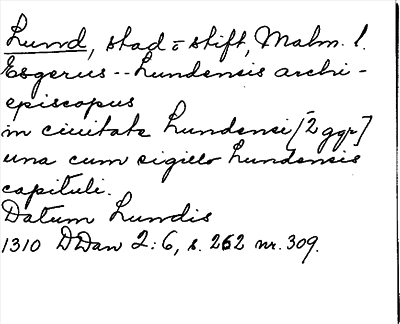 Lund, stad o stift, Malm. l.
Esgerus -- Lundensis archi-
episcopus
in ciuitate Lundensi [2 ggr]
una cum sigillo Lundensis
capituli.
Datum Lundis
1310 DDan 2:6, s. 262 nr. 309.